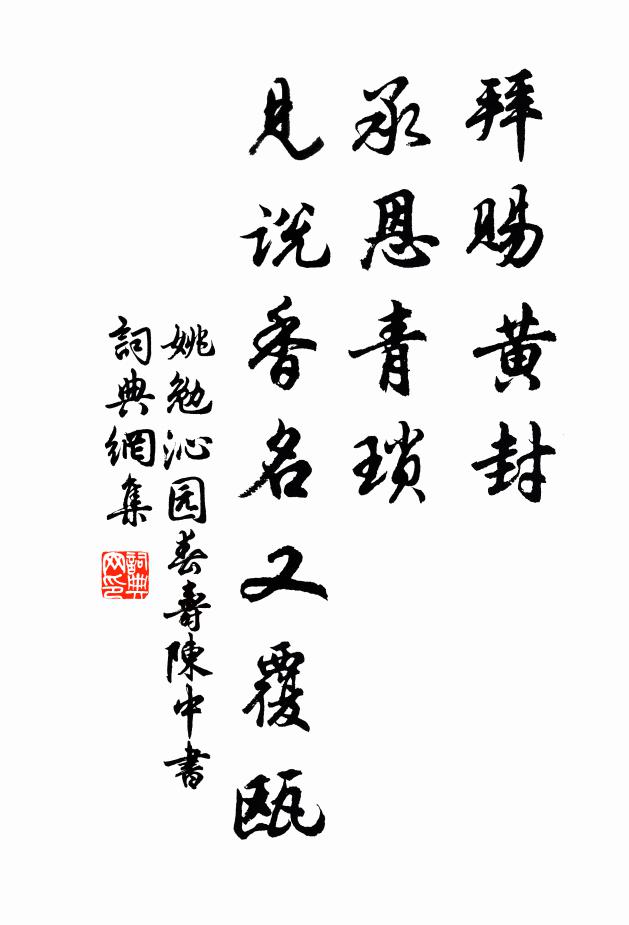 拜賜黃封
承恩青瑣
見說香名又覆瓯
姚勉沁园春壽陳中書
詞典網集
詞典
网印